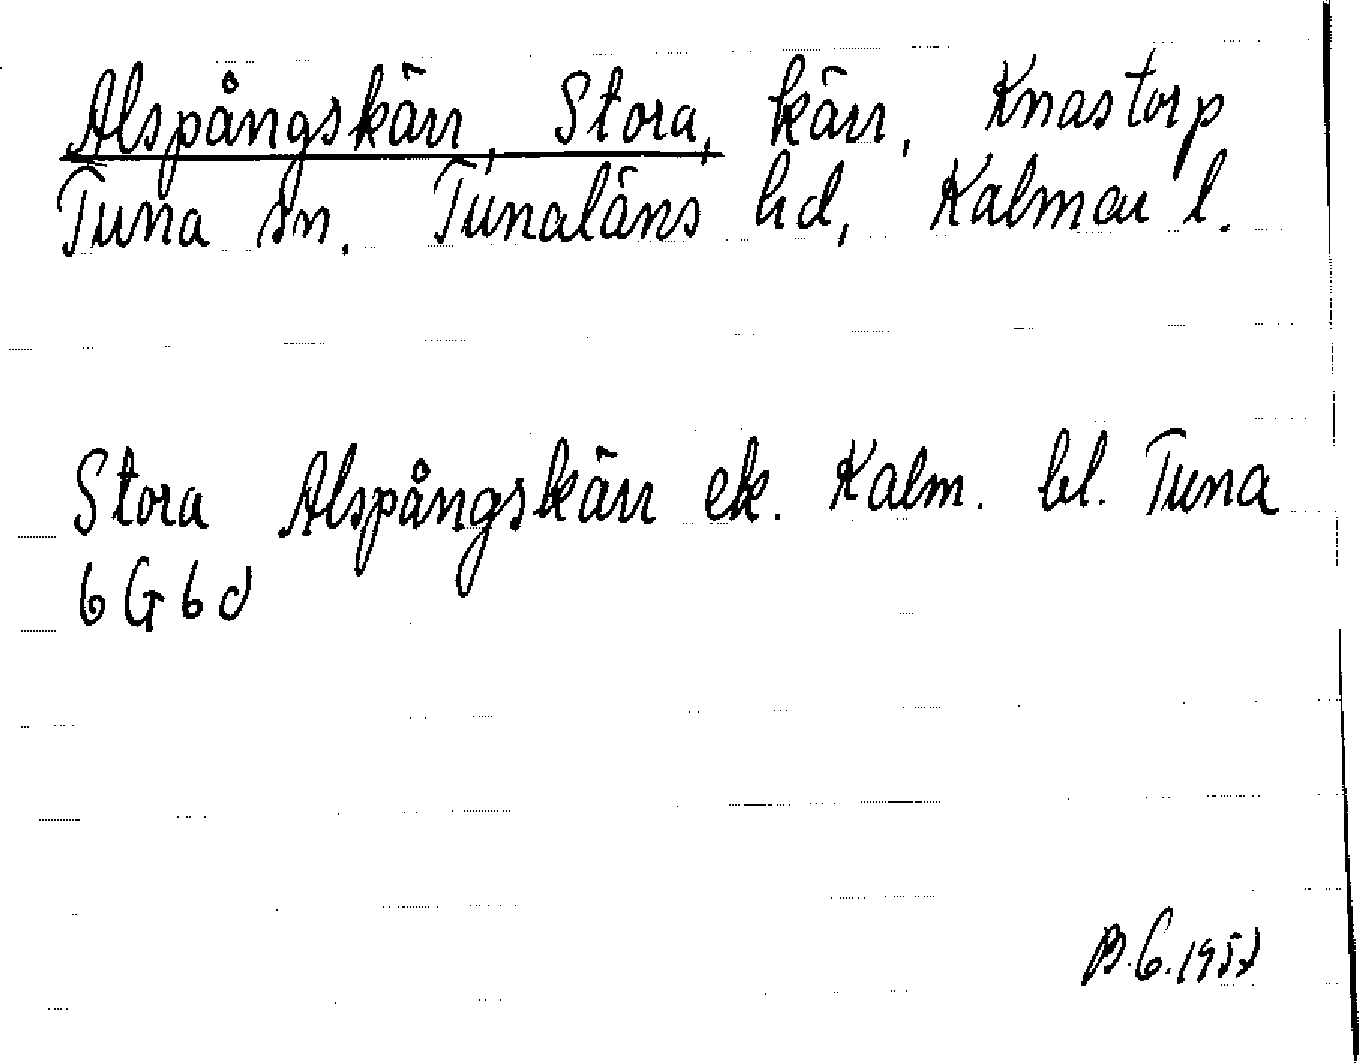 Alspångskärr, Stora, kärr, Knastorp
Tuna sn. Tunaläns hd, Kalmar l.
Stora Alspångskärr ek. Kalm. bl. Tuna
6G6d